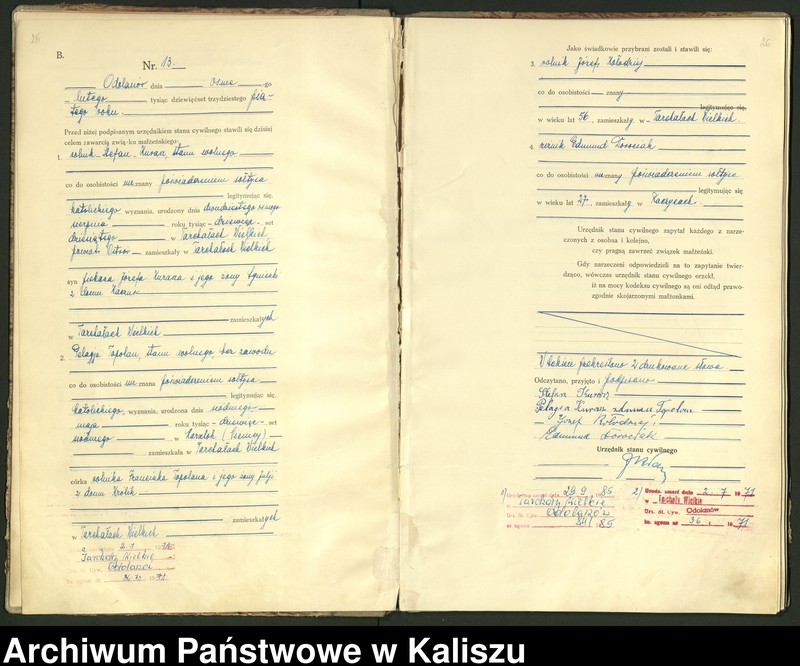 26
B.
Nr. 13
Odolanów dnia ósme go
lutego tysiąc dziewięćset trzydziestego pią-
tego roku.
Przed niżej podpisanym urzędnikiem stanu cywilnego stawili się dzisiaj
celem zawarcia związku małżeńskiego:
1. rolnik Stefan Kuraś, stanu wolnego
co do osobistości nieznany poświadczeniem sołtysa
legitymując się,
katolickiego wyznania, urodzony dnia dwudziestego
sierpnia roku tysiąc dziewięć set
dziesiątego w Tarchałach Wielkich
powiat zamieszkały w Tarchałach Wielkich
syn Józefa Kurasa i jego żony Agnieszki
z domu
zamieszkałych
w Tarchałach Wielkich
2. Pelagja Topolan, stanu wolnego, bez zawodu
co do osobistości nieznana poświadczeniem sołtysa
legitymując się,
katolickiego wyznania, urodzona dnia siódmego
maja roku tysiąc dziewięć set
siódmego w (Niemcy)
zamieszkała w Tarchałach Wielkich
córka rolnika Franciszka Topolana i jego żony Julji
z domu Królik
zamieszkałych
w Tarchałach Wielkich
Tarchały Wielkie
26
Jako świadkowie przybrani zostali i stawili się:
3. rolnik Józef Kołodziej
co do osobistości znany
legitymując się,
w wieku lat 56, zamieszkały w Tarchałach Wielkich
4. Edmund Dorociak
co do osobistości nieznany poświadczeniem sołtysa
legitymując się
w wieku lat 27, zamieszkały w Raczycach
Urzędnik stanu cywilnego zapytał każdego z narze-
czonych z osobna i kolejno,
czy pragną zawrzeć związek małżeński.
Gdy narzeczeni odpowiedzieli na to zapytanie twier-
dząco, wówczas urzędnik stanu cywilnego orzekł,
iż na mocy kodeksu cywilnego są oni odtąd prawo-
zgodnie skojarzonymi małżonkami.
W tekście przekreślono 2 drukowane słowa.
Odczytano, przyjęto i podpisano
Stefan Kuraś
Pelagia Kuraś z domu Topolan
Józef Kołodziej
Edmund Dorociak
Urzędnik stanu cywilnego
1) 29 9 1985
Tarchały Wielkie
Odolanów
84 85
2) Urodz. zmarł dnia 2. 7 1971
w Tarchały Wielkie
Urz. St. Cyw. Odolanów
Nr. zgonu nr 36 1971
Archiwum Państwowe w Kaliszu